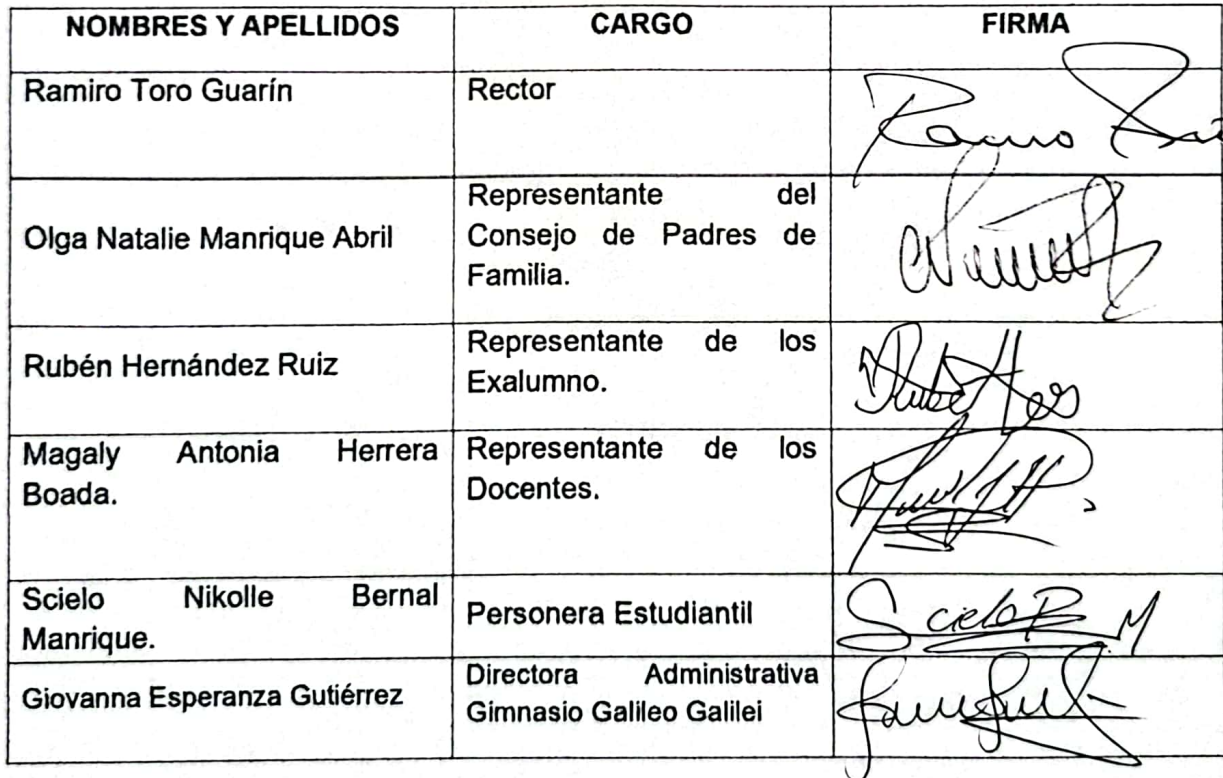 NOMBRES Y APELLIDOS CARGO FIRMA
Ramiro Toro Guarín Rector
Representante del
Olga Natalie Manrique Abril Consejo de Padres de
Familia.
Rubén Hernández Ruiz Representante de los
Exalumno.
Magaly Antonia Herrera Representante de los
Boada. Docentes.
Scielo Nikolle Bernal
Manrique. Personera Estudiantil
Giovanna Esperanza Gutiérrez Directora Administrativa
Gimnasio Galileo Galilei